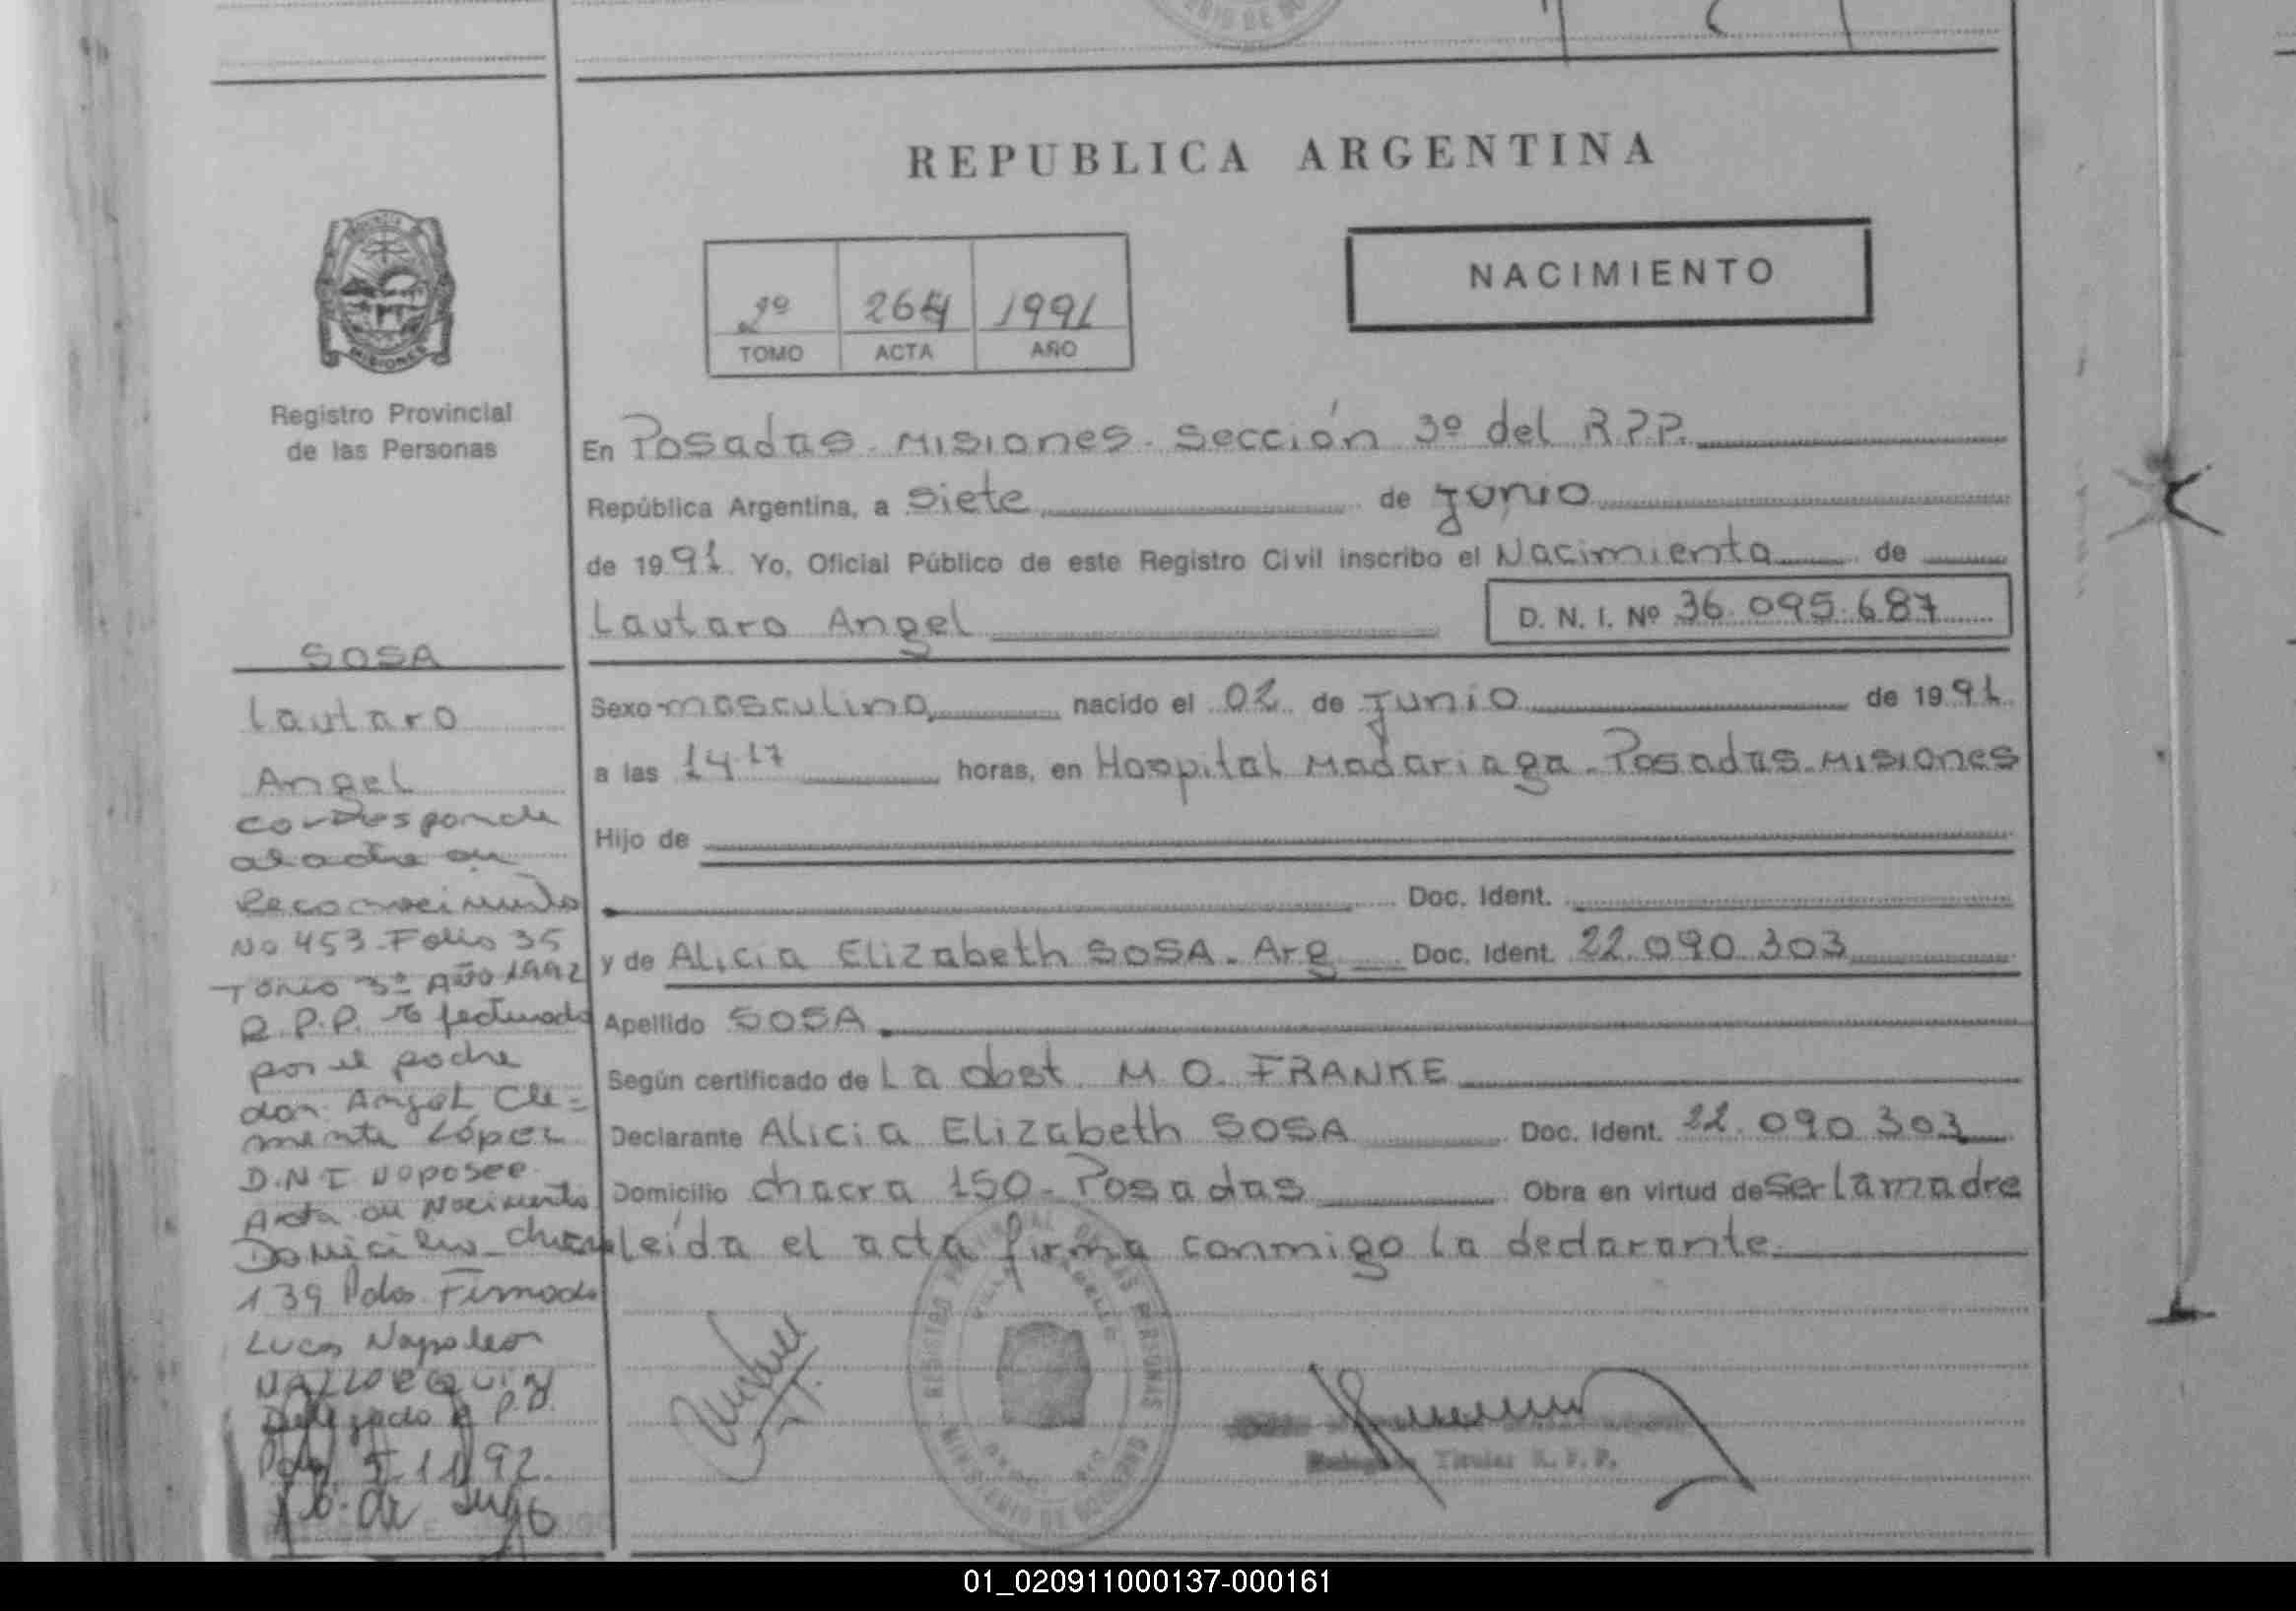 REPUBLICA ARGENTINA
NACIMIENTO
2º 264 1991
TOMO ACTA AÑO
MISIONES
Registro Provincial
de las Personas
SOSA
Lautaro
Angel
corresponde
al acta de
Reconocimiento
No 453 - Folio 35
Tomo 3º Año 1992
R.P.P. efectuado
por el padre
don Angel Cle=
mente López
D.N.I no posee
Acta de Nacimiento
Domicilio chacra
139 Pdas. Firmado
Lucas Napoleon
Delegado R.P.P.
Pdas 5-11-92
En Posadas - Misiones - Sección 3º del R.P.P.
República Argentina, a siete de junio
de 1991 Yo, Oficial Público de este Registro Civil inscribo el Nacimiento de
Lautaro Angel D. N. I. Nº 36.095.687
Sexo masculino nacido el 02 de junio de 1991
a las 14.17 horas, en Hospital Madariaga - Posadas - Misiones
Hijo de
Doc. Ident.
y de Alicia Elizabeth SOSA - Arg Doc. Ident. 22.090.303
Apellido SOSA
Según certificado de La obst. M O. FRANKE
Declarante Alicia Elizabeth SOSA Doc. Ident. 22.090.303
Domicilio chacra 150 - Posadas Obra en virtud de ser la madre
leída el acta firma conmigo la declarante
Titular R.P.P.
01_020911000137-000161